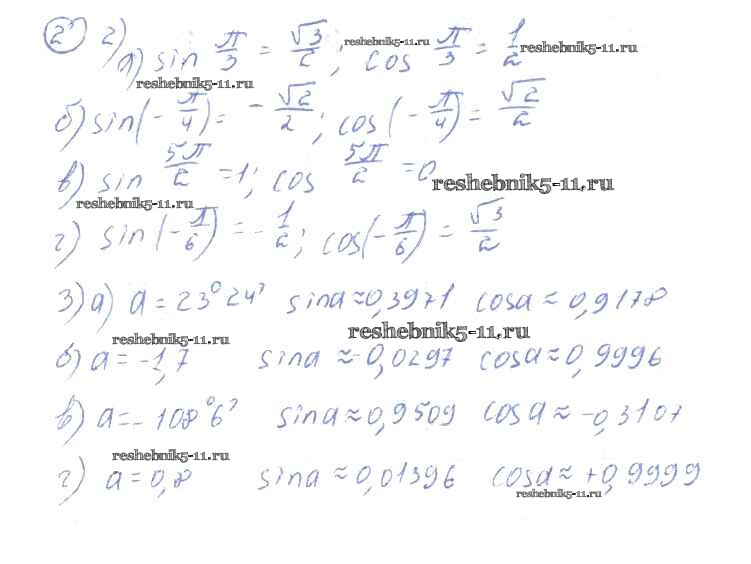 2) 2)
а) sin π/3 = √3/2; reshebnik5-11.ru cos π/3 = 1/2 reshebnik5-11.ru
reshebnik5-11.ru
б) sin(-π/4) = -√2/2; cos(-π/4) = √2/2
в) sin 5π/2 = 1; cos 5π/2 = 0 reshebnik5-11.ru
reshebnik5-11.ru
г) sin(-π/6) = -1/2; cos(-π/6) = √3/2
3) а) a = 23°24' sina ≈ 0,3971 cosa ≈ 0,9178
reshebnik5-11.ru reshebnik5-11.ru
б) a = -1,7 sina ≈ -0,0297 cosa ≈ 0,9996
в) a = -108°6' sina ≈ 0,9509 cosa ≈ -0,3107
reshebnik5-11.ru
г) a = 0,8 sina ≈ 0,01396 cosa ≈ +0,9999
reshebnik5-11.ru